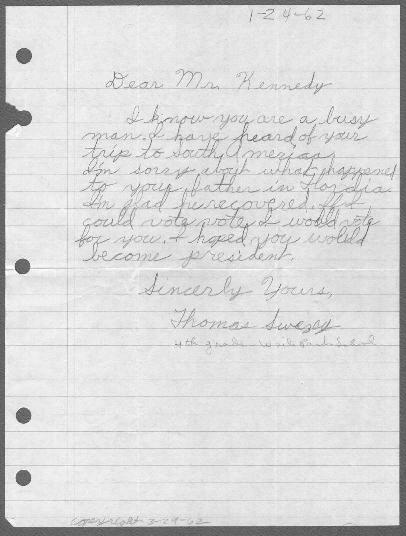 1-24-62
Dear Mr. Kennedy
I know you are a busy
man. I have heard of your
trip to South America.
I'm sorry about what happened
to your father in Flordia.
I'm glad he recovered. If I
could vote vote, I would vote
for you. I hoped you would
become president.
Sincerly Yours,
Thomas Swezey
4th grade - Park School
3-29-62